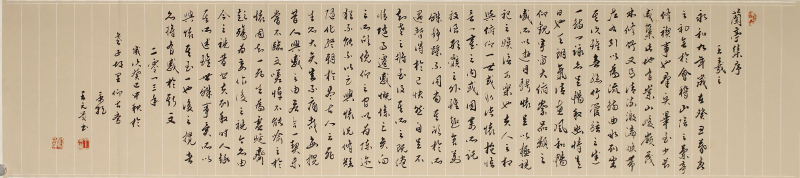 蘭亭集序
王羲之
永和九年歲在癸丑暮春
之初會於會稽山陰之蘭亭
修禊事也群賢畢至少長
咸集此地有崇山峻嶺茂
林修竹又有清流激湍映帶
左右引以為流觴曲水列坐
其次雖無絲竹管弦之盛
一觴一詠亦足以暢敘幽情是
日也天朗氣清惠風和暢
仰觀宇宙之大俯察品類之
盛所以遊目騁懷足以極視
聽之娛信可樂也夫人之相
與俯仰一世或取諸懷抱悟
言一室之內或因寄所託
放浪形骸之外雖趣舍萬
殊靜躁不同當其欣於所
遇暫得於己快然自足不
知老之將至及其所之既倦
情隨事遷感慨係之矣向
之所欣俯仰之間以為陳迹
猶不能不以之興懷況修短
隨化終期於盡古人云死
生亦大矣豈不痛哉每攬
昔人興感之由若合一契未
嘗不臨文嗟悼不能喻之於
懷固知一死生為虛誕齊
彭殤為妄作後之視今亦由
今之視昔悲夫故列敘時人錄
其所述雖世殊事異所以
興懷其致一也後之攬者
亦將有感於斯文
二零一三年
歲次癸巳中秋於